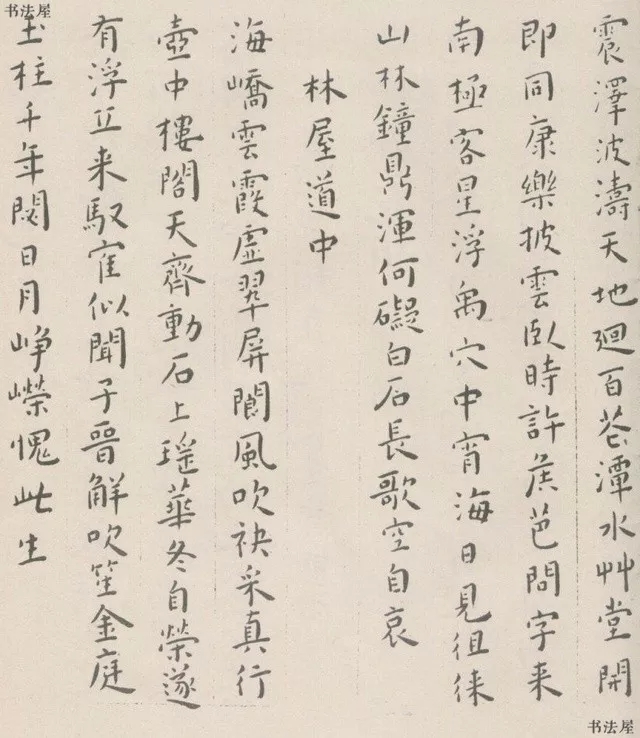 书法屋
震澤波濤天地廻百花潭水艸堂開
即同康樂披雲臥時許侯芭問字来
南極客星浮禹穴中宵海日見徂徠
山林鐘鼎渾何礙白石長歌空自哀
林屋道中
海嶠雲霞虛翠屏閬風吹袂采真行
壺中樓閣天齊動石上瑤華冬自榮遂
有浮丘来馭寉似聞子晉解吹笙金庭
玉柱千年閟日月崢嶸愧此生
书法屋